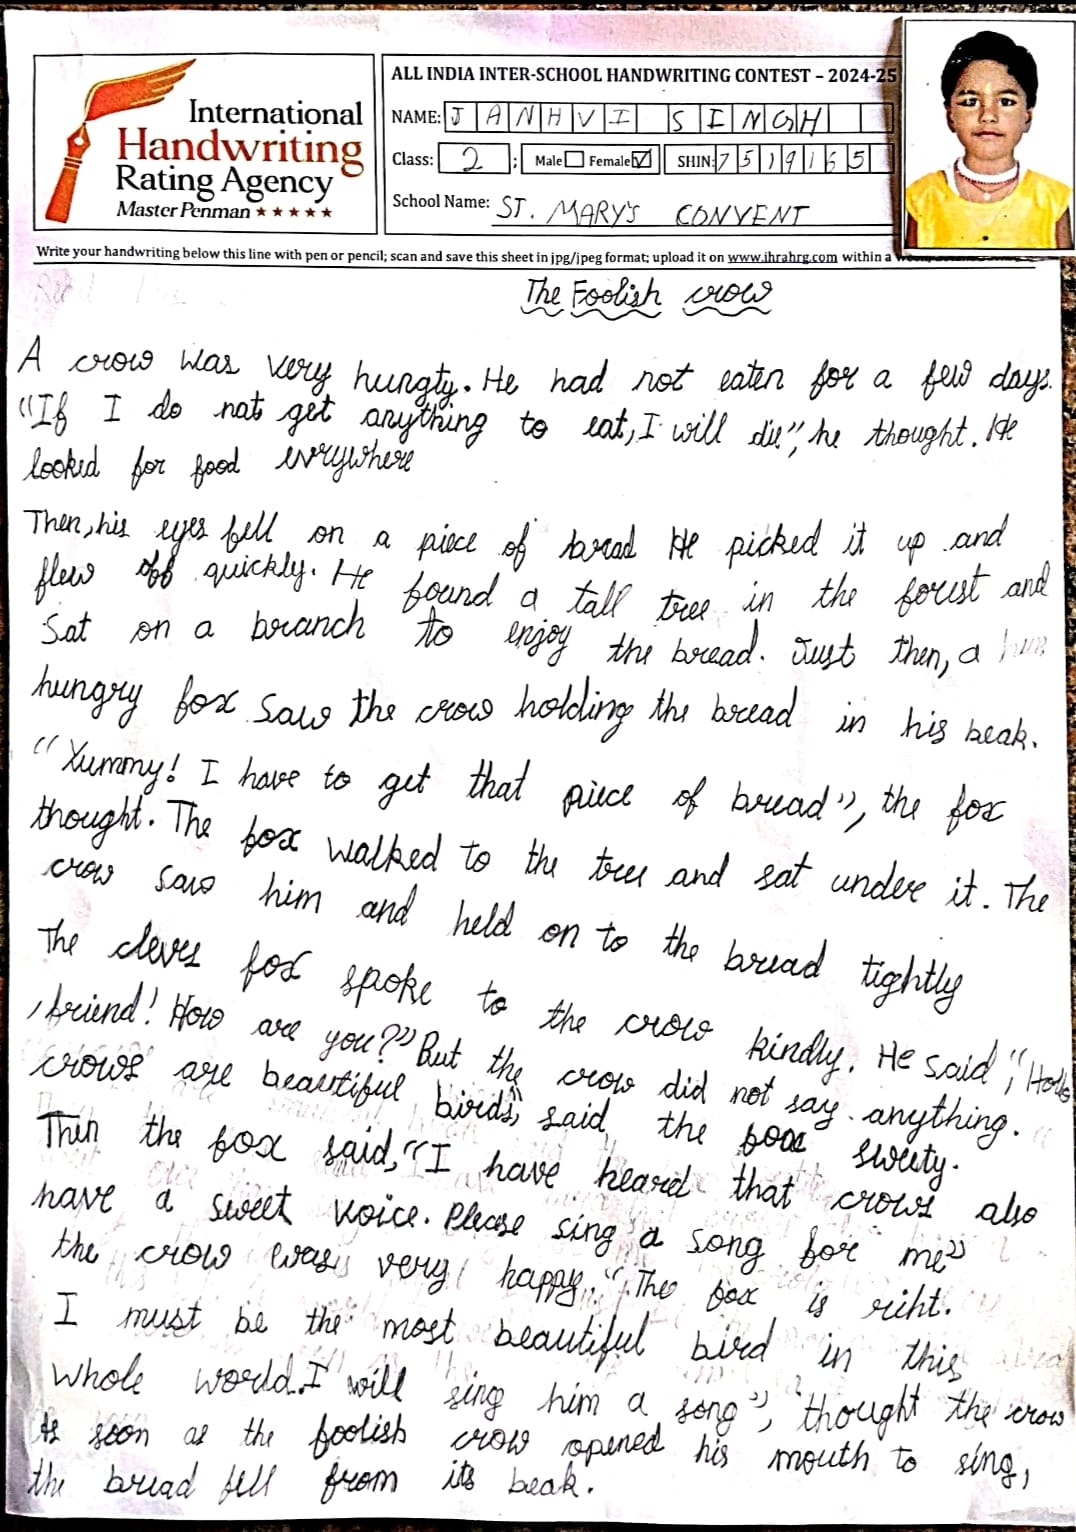 International
Handwriting
Rating Agency
Master Penman ★★★★★
ALL INDIA INTER-SCHOOL HANDWRITING CONTEST – 2024-25
NAME: JANHVI SINGH
Class: 2 ; Male ☐ Female ☑ SHIN: 7519165
School Name: ST. MARY'S CONVENT
Write your handwriting below this line with pen or pencil; scan and save this sheet in jpg/jpeg format; upload it on www.ihrahrg.com within a
The Foolish crow
A crow was very hungty. He had not eaten for a few days.
"If I do not get anything to eat, I will die", he thought. He
looked for food everywhere
Then, his eyes fell on a piece of bread He picked it up and
flew off quickly. He found a tall tree in the forest and
Sat on a branch to enjoy the bread. Just then, a
hungry fox saw the crow holding the bread in his beak.
"Yummy! I have to get that piece of bread", the fox
thought. The fox walked to the tree and sat under it. The
crow saw him and held on to the bread tightly
The clever fox spoke to the crow kindly. He said, "Hello
, friend! How are you?" But the crow did not say anything. "
crows are beautiful birds", said the foox sweety.
Then the fox said, "I have heard that crows also
have a sweet voice. Please sing a song for me"
the crow was very happy. "The fox is riht.
I must be the most beautiful bird in this
whole world. I will sing him a song", thought the crow
As soon as the foolish crow opened his mouth to sing,
the bread fell from its beak.